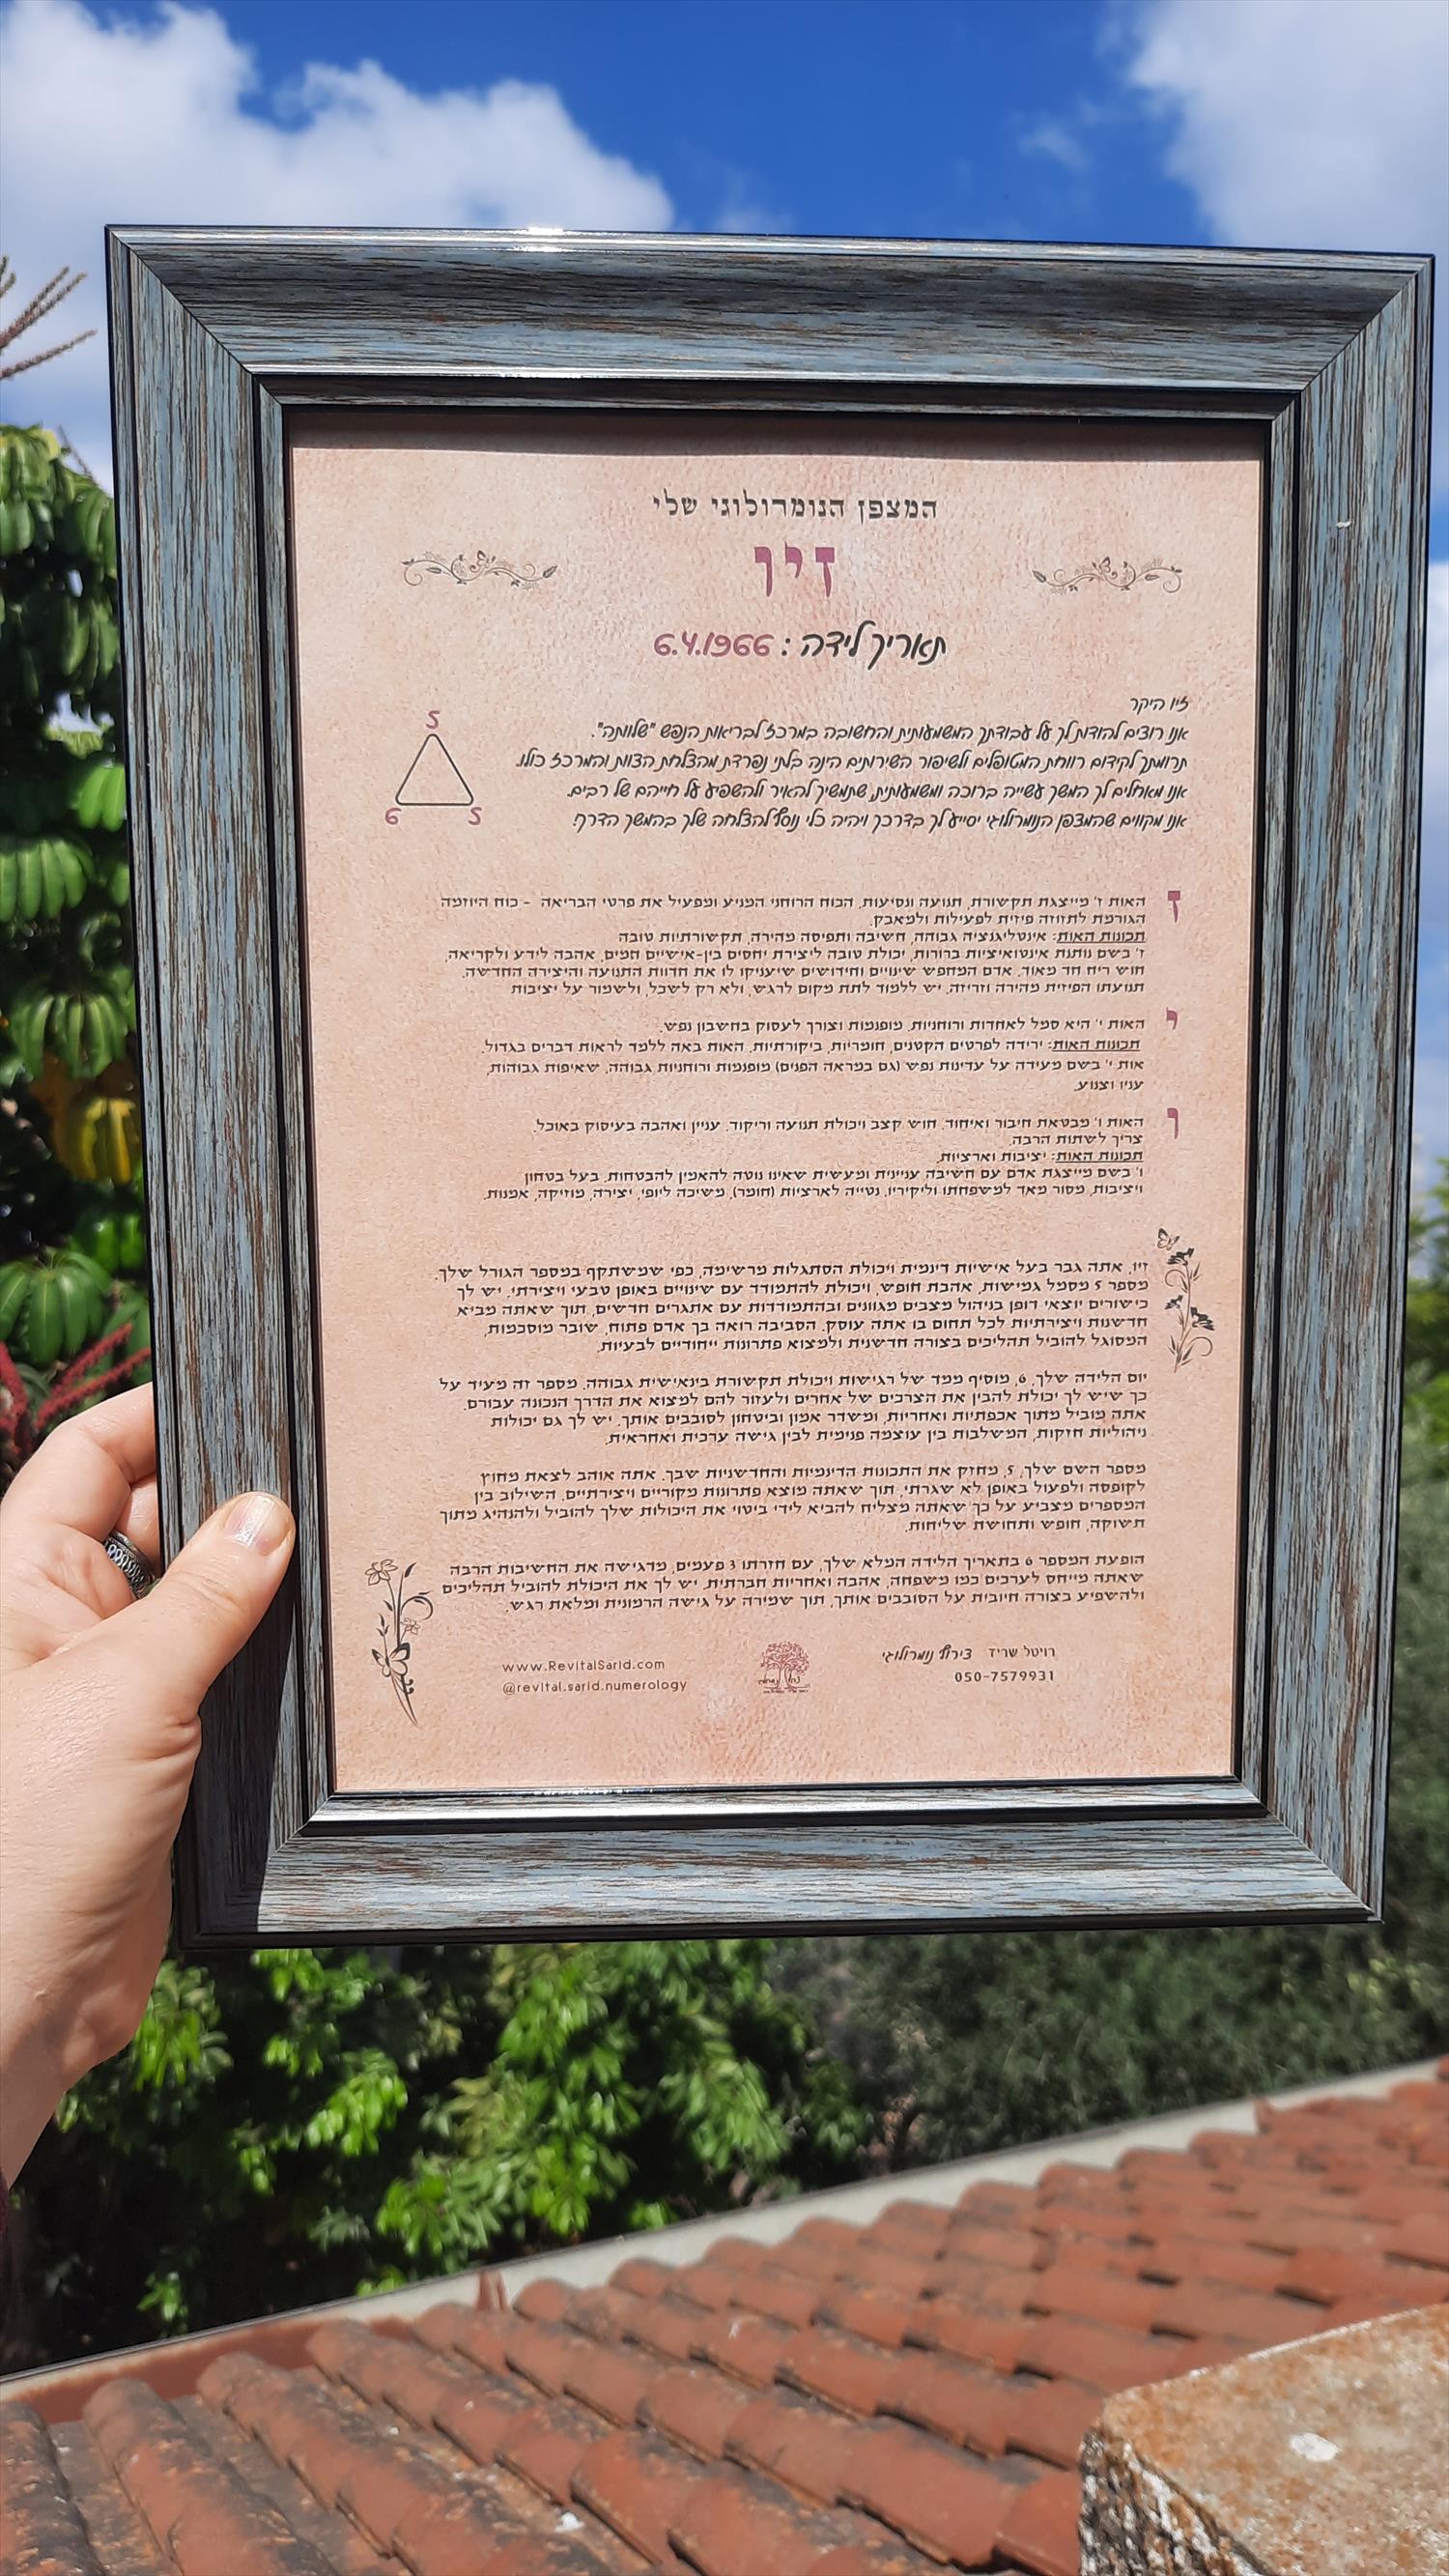 המצפן הנומרולוגי שלי
זיו
תאריך לידה : 6.4.1966
זיו היקר
אנו רוצים להודות לך על עבודתך המשמעותית והחשובה במרכז לבריאות הנפש "שלוותה".
תרומתך לקידום רווחת המטופלים ולשיפור השירותים הינה בלתי נפרדת מהצלחת הצוות והמרכז כולו.
אנו מאחלים לך המשך עשייה ברוכה ומשמעותית, שתמשיך להאיר ולהשפיע על חייהם של רבים.
אנו מקווים שהמצפן הנומרולוגי יסייע לך בדרכך ויהיה כלי נוסף להצלחה שלך בהמשך הדרך!
5
6 5
ז
האות ז' מייצגת תקשורת, תנועה ונסיעות. הכוח הרוחני המניע ומפעיל את פרטי הבריאה - כוח היוזמה
הגורמת לתזוזה פיזית לפעילות ולמאבק.
תכונות האות: אינטליגנציה גבוהה, חשיבה ותפיסה מהירה, תקשורתיות טובה
ז' בשם נותנת אינטואיציות ברורות, יכולת טובה ליצירת יחסים בין-אישיים חמים, אהבה לידע ולקריאה,
חוש ריח חד מאוד. אדם המחפש שינויים וחידושים שיעניקו לו את חדוות התנועה והיצירה החדשה.
תנועתו הפיזית מהירה וזריזה. יש ללמוד לתת מקום לרגש, ולא רק לשכל, ולשמור על יציבות
י
האות י' היא סמל לאחדות ורוחניות. מופנמות וצורך לעסוק בחשבון נפש.
תכונות האות: ירידה לפרטים הקטנים, חומריות, ביקורתיות. האות באה ללמד לראות דברים בגדול.
אות י' בשם מעידה על עדינות נפש (גם במראה הפנים) מופנמות ורוחניות גבוהה, שאיפות גבוהות,
עניו וצנוע.
ו
האות ו' מבטאת חיבור ואיחוד. חוש קצב ויכולת תנועה וריקוד. עניין ואהבה בעיסוק באוכל.
צריך לשתות הרבה.
תכונות האות: יציבות וארציות.
ו' בשם מייצגת אדם עם חשיבה עניינית ומעשית שאינו נוטה להאמין להבטחות. בעל בטחון
ויציבות, מסור מאד למשפחתו וליקיריו. נטייה לארציות (חומר), משיכה ליופי, יצירה, מוזיקה, אמנות.
זיו, אתה גבר בעל אישיות דינמית ויכולת הסתגלות מרשימה, כפי שמשתקף במספר הגורל שלך.
מספר 5 מסמל גמישות, אהבת חופש, ויכולת להתמודד עם שינויים באופן טבעי ויצירתי. יש לך
כישורים יוצאי דופן בניהול מצבים מגוונים ובהתמודדות עם אתגרים חדשים, תוך שאתה מביא
חדשנות ויצירתיות לכל תחום בו אתה עוסק. הסביבה רואה בך אדם פתוח, שובר מוסכמות,
המסוגל להוביל תהליכים בצורה חדשנית ולמצוא פתרונות ייחודיים לבעיות.
יום הלידה שלך, 6, מוסיף ממד של רגישות ויכולת תקשורת בינאישית גבוהה. מספר זה מעיד על
כך שיש לך יכולת להבין את הצרכים של אחרים ולעזור להם למצוא את הדרך הנכונה עבורם.
אתה מוביל מתוך אכפתיות ואחריות, ומשדר אמון וביטחון לסובבים אותך. יש לך גם יכולות
ניהוליות חזקות, המשלבות בין עוצמה פנימית לבין גישה ערכית ואחראית.
מספר השם שלך, 5, מחזק את התכונות הדינמיות והחדשניות שבך. אתה אוהב לצאת מחוץ
לקופסה ולפעול באופן לא שגרתי, תוך שאתה מוצא פתרונות מקוריים ויצירתיים. השילוב בין
המספרים מצביע על כך שאתה מצליח להביא לידי ביטוי את היכולות שלך להוביל ולהנהיג מתוך
תשוקה, חופש ותחושת שליחות.
הופעת המספר 6 בתאריך הלידה המלא שלך, עם חזרתו 3 פעמים, מדגישה את החשיבות הרבה
שאתה מייחס לערכים כמו משפחה, אהבה ואחריות חברתית. יש לך את היכולת להוביל תהליכים
ולהשפיע בצורה חיובית על הסובבים אותך, תוך שמירה על גישה הרמונית ומלאת רגש.
רויטל שריד צירוף נומרולוגי
050-7579931
www.RevitalSarid.com
@revital.sarid.numerology